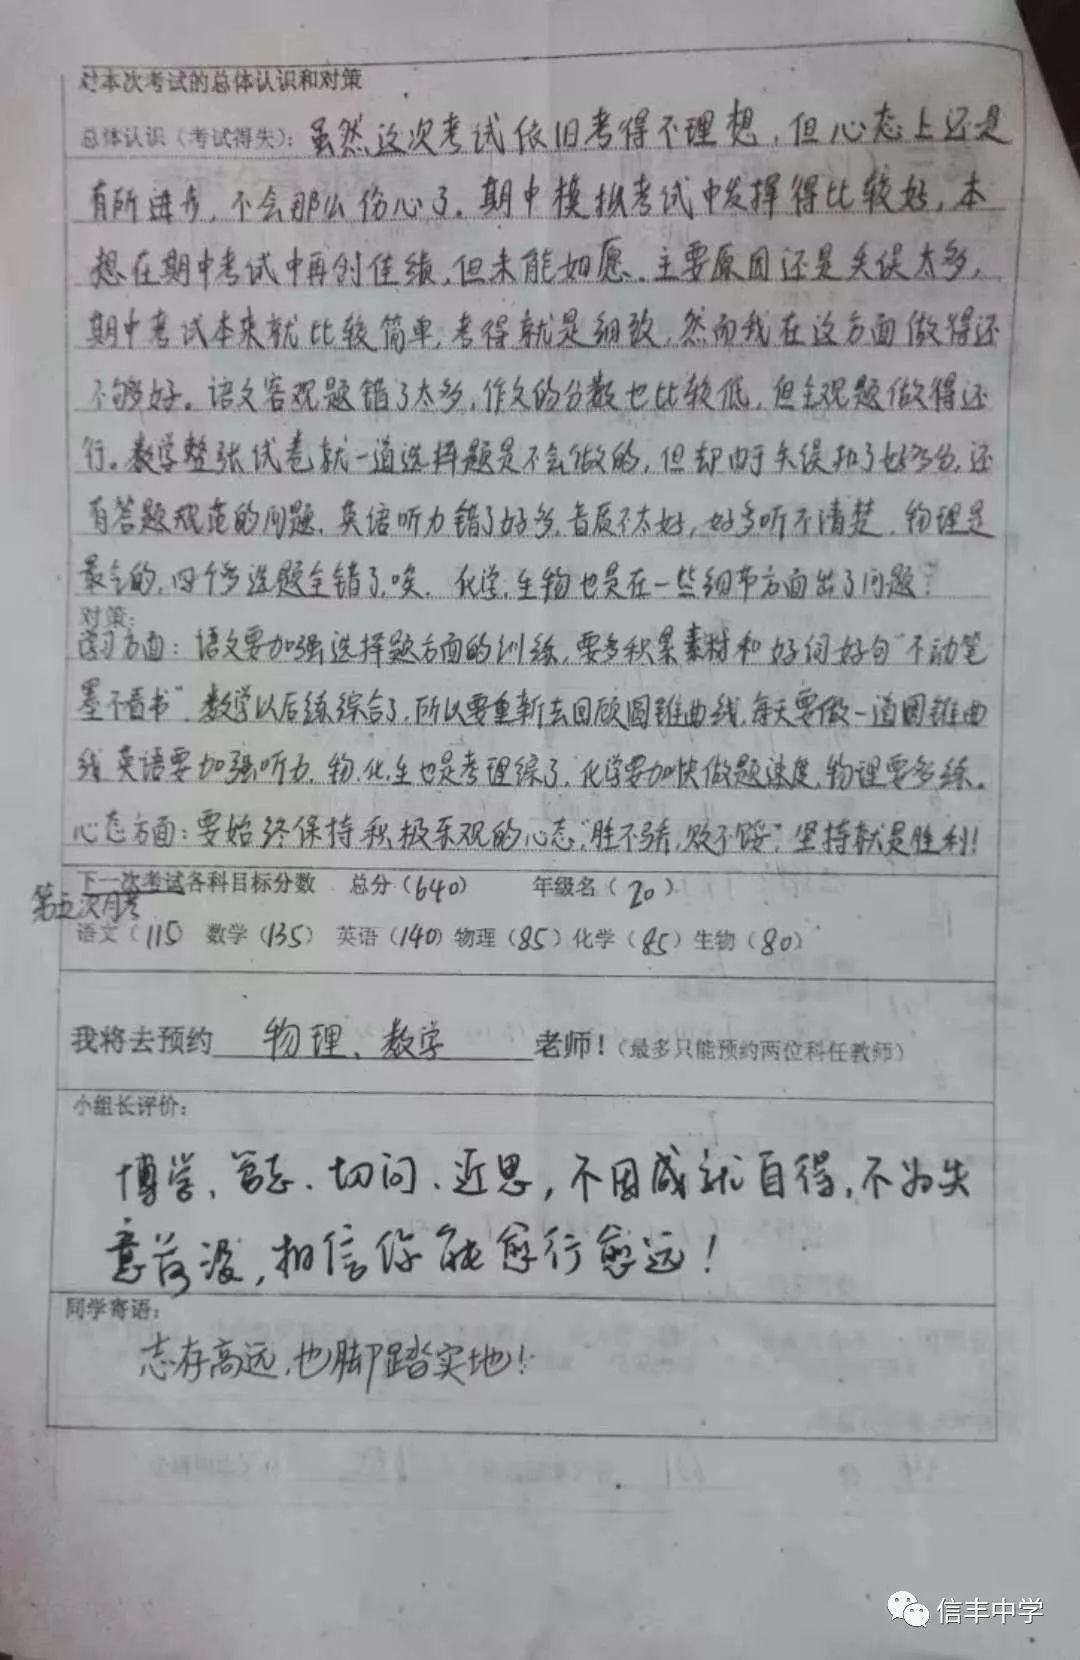 对本次考试的总体认识和对策
总体认识（考试得失）：虽然这次考试依旧考得不理想，但心态上还是
有所进步，不会那么伤心了。期中模拟考试中发挥得比较好，本
想在期中考试中再创佳绩，但未能如愿。主要原因还是失误太多，
期中考试本来就比较简单，考得就是细致，然而我在这方面做得还
不够好。语文客观题错了太多，作文的分数也比较低，但主观题做得还
行。数学整张试卷就一道选择题是不会做的，但却由于失误扣了好多分，还
有答题规范的问题，英语听力错了好多，音质不太好，好多听不清楚，物理是
最亏的，四个多选题全错了，唉。化学，生物也是在一些细节方面出了问题。
对策：
学习方面：语文要加强选择题方面的训练，要多积累素材和好词好句“不动笔
墨不看书”，数学以后练综合了，所以要重新去回顾圆锥曲线，每天要做一道圆锥曲
线，英语要加强听力，物，化，生也是考理综了，化学要加快做题速度，物理要多练。
心态方面：要始终保持积极乐观的心态，“胜不骄，败不馁”，坚持就是胜利！
下一次考试各科目标分数 总分（640） 年级名（20）
第五次月考
语文（115） 数学（135） 英语（140）物理（85）化学（85）生物（80）
我将去预约 物理、数学 老师！（最多只能预约两位科任教师）
小组长评价：
博学、笃志、切问、近思，不因成就自得，不为失
意落没，相信你能愈行愈远！
同学寄语：
志存高远，也脚踏实地！
信丰中学